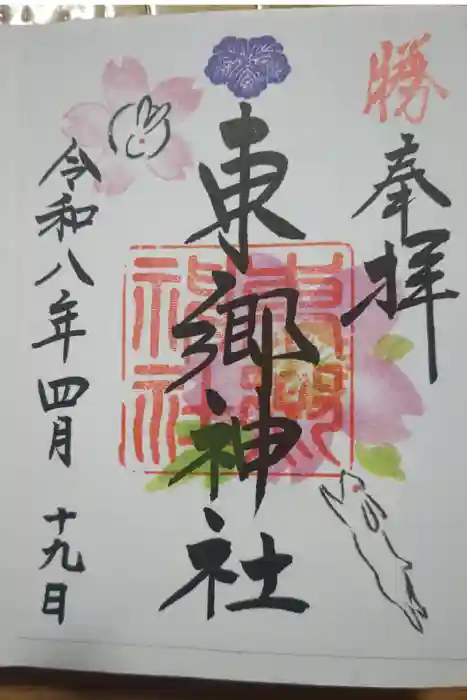 勝
奉拝
東郷神社
東郷神社
令和八年四月十九日